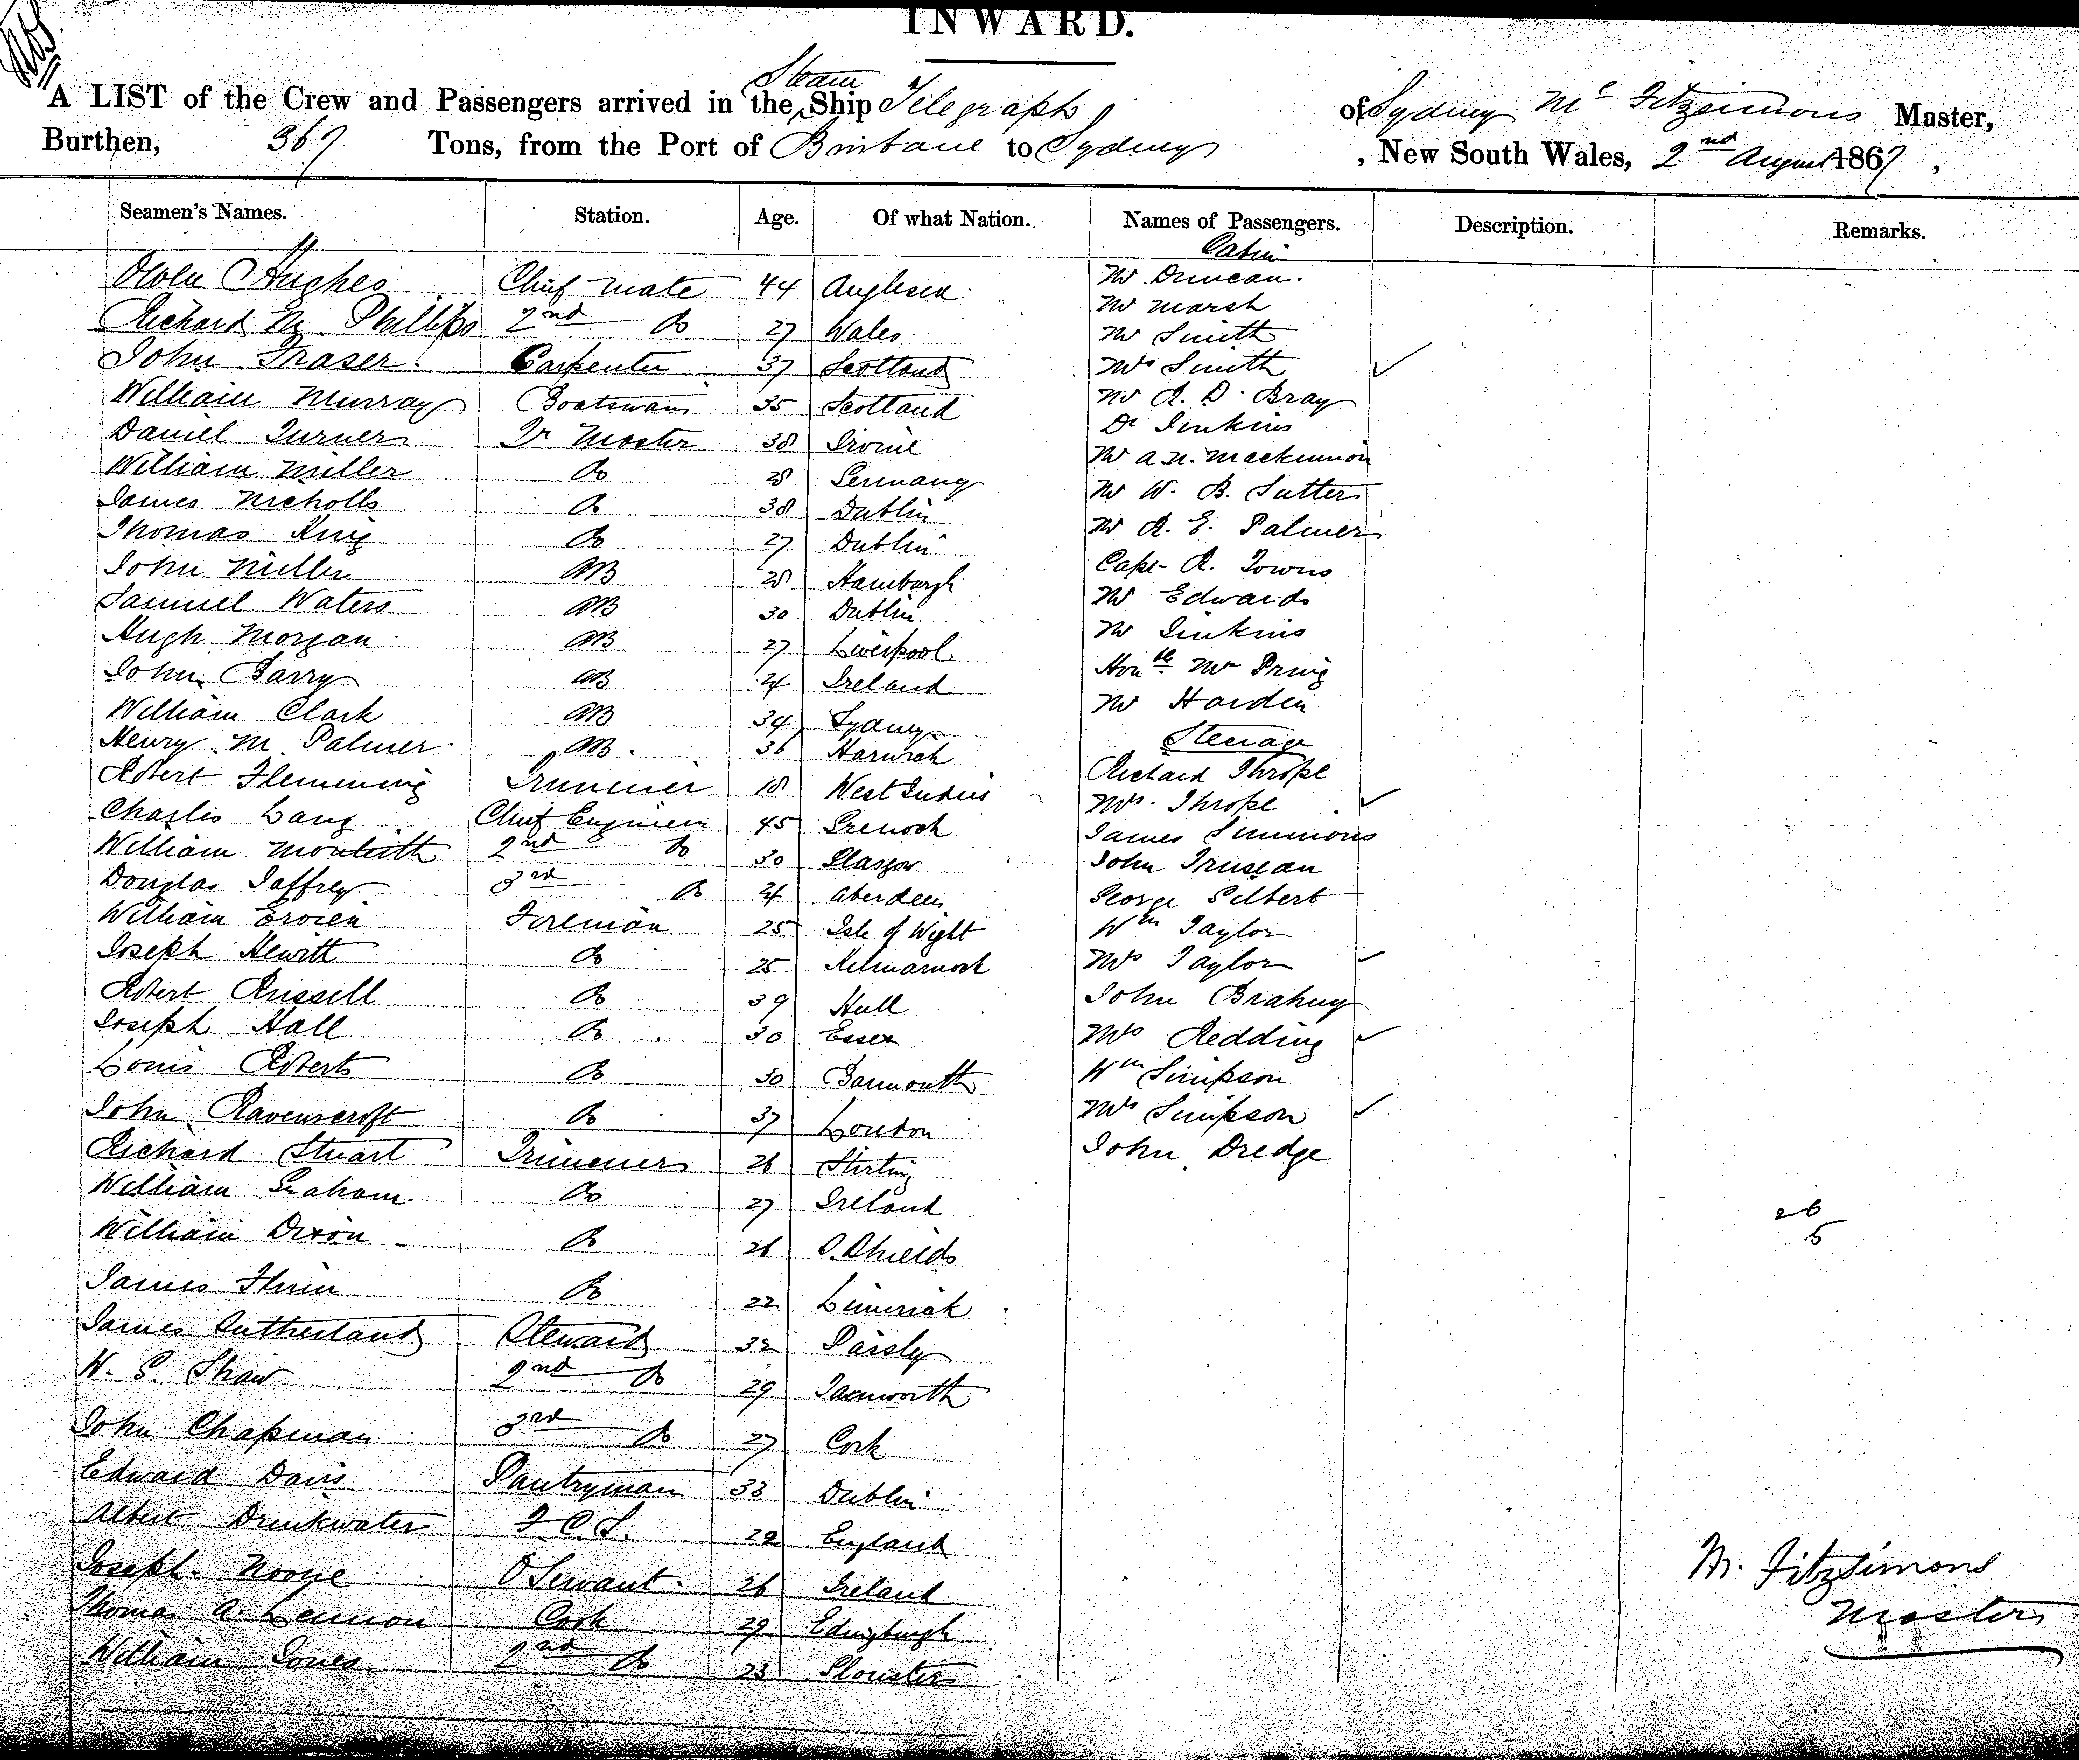 INWARD.
A LIST of the Crew and Passengers arrived in the Steam Ship Telegraph of Sydney Mc Fitzsimons Master,
Burthen, 367 Tons, from the Port of Brisbane to Sydney, New South Wales, 2nd August 1867,
Seamen's Names. Station. Age. Of what Nation. Names of Passengers. Description. Remarks.
Cabin
Owen Hughes Chief mate 44 Anglesea Mr Duncan.
Mr Marsh
Richard M Phillips 2nd Do 27 Wales Mr Smith
John Fraser Carpenter 37 Scotland Mrs Smith ✓
William Murray Boatswain 35 Scotland Mr R. D. Bray
Daniel Turner Qr Master 38 Irvine Dr Jenkins
William Miller Do 28 Germany Mr A. N. Mackinnon
James Nicholls Do 38 Dublin Mr W. B. Sutter
Thomas King Do 27 Dublin Mr R. E. Palmer
John Miller AB 28 Hamburgh Capt R. Towns
Samuel Waters AB 30 Dublin Mr Edwards
Hugh Morgan AB 27 Liverpool Mr Jenkins
John Barry AB 24 Ireland Honble Mr Pring
William Clark AB 34 Sydney Mr Harden
Henry M Palmer AB. 36 Harwich Steerage
Robert Flemming Trimmer 18 West Indies Richard Thrope
Charles Lang Chief Engineer 45 Greenock Mrs Thrope ✓
William Monteith 2nd Do 30 Glasgow James Simmons
John Trussan
Douglas Jaffrey 3rd Do 24 Aberdeen George Gilbert
William Brown Fireman 25 Isle of Wight Wm Taylor
Joseph Hewitt Do 25 Kilmarnock Mrs Taylor ✓
Robert Russell Do 39 Hull John Brahny
Joseph Hall Do 30 Essex Mrs Redding ✓
Louis Roberts Do 30 Barmouth Wm Simpson
John Ravenscroft Do 37 London Mrs Simpson ✓
Richard Stuart Trimmer 26 Stirling John Dredge
William Graham Do 27 Ireland
26
5
William Dixon Do 26 S. Shields
James Flinn Do 22 Limerick
James Sutherland Steward 32 Paisly
W. G. Shaw 2nd Do 29 Tamworth
John Chapman 3rd Do 27 Cork
Edward Davis Pantryman 33 Dublin
Albert Drinkwater F. C. S. 22 England
Joseph Do Servant 26 Ireland
Thomas A. Lennon Cook 29 Edinburgh
William Jones 2nd Do 23 Gloucester
M. Fitzsimons
Master